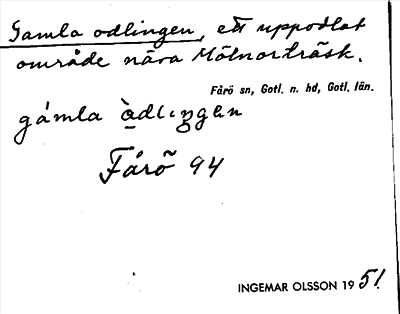 Gamla odlingen, ett uppodlat
område nära Mölnorträsk.
Fårö sn, Gotl. n. hd, Gotl. län.
gámla òdlıŋgen
Fårö 94
INGEMAR OLSSON 1951.